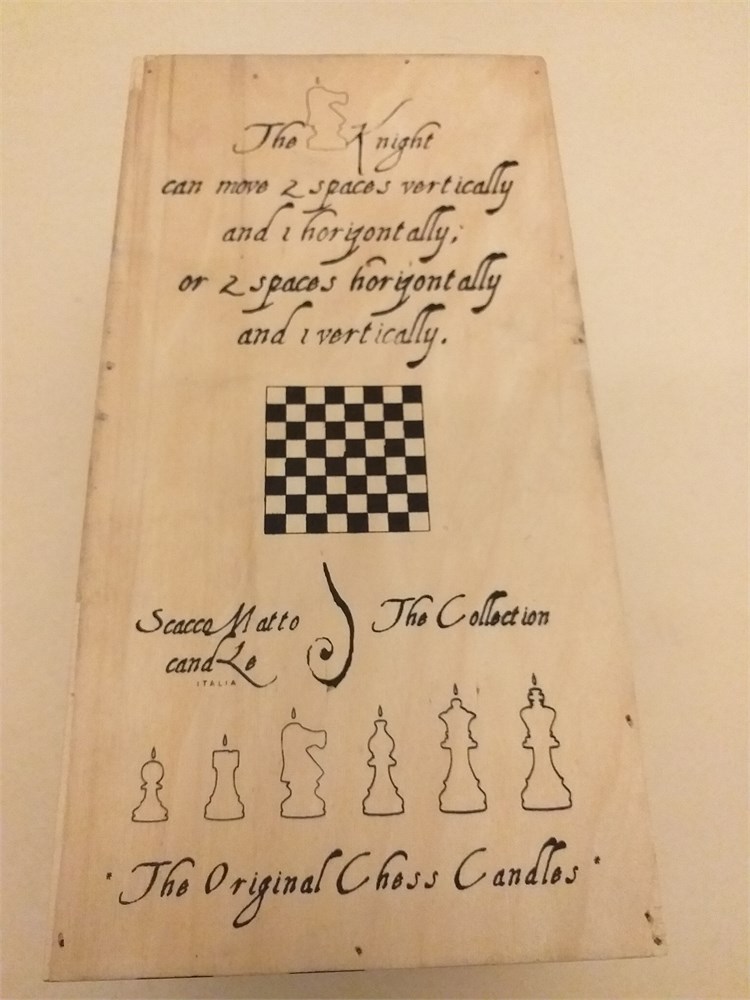 The Knight
can move 2 spaces vertically
and 1 horizontally;
or 2 spaces horizontally
and 1 vertically.
Scacco Matto
candLe
ITALIA
The Collection
"The Original Chess Candles"